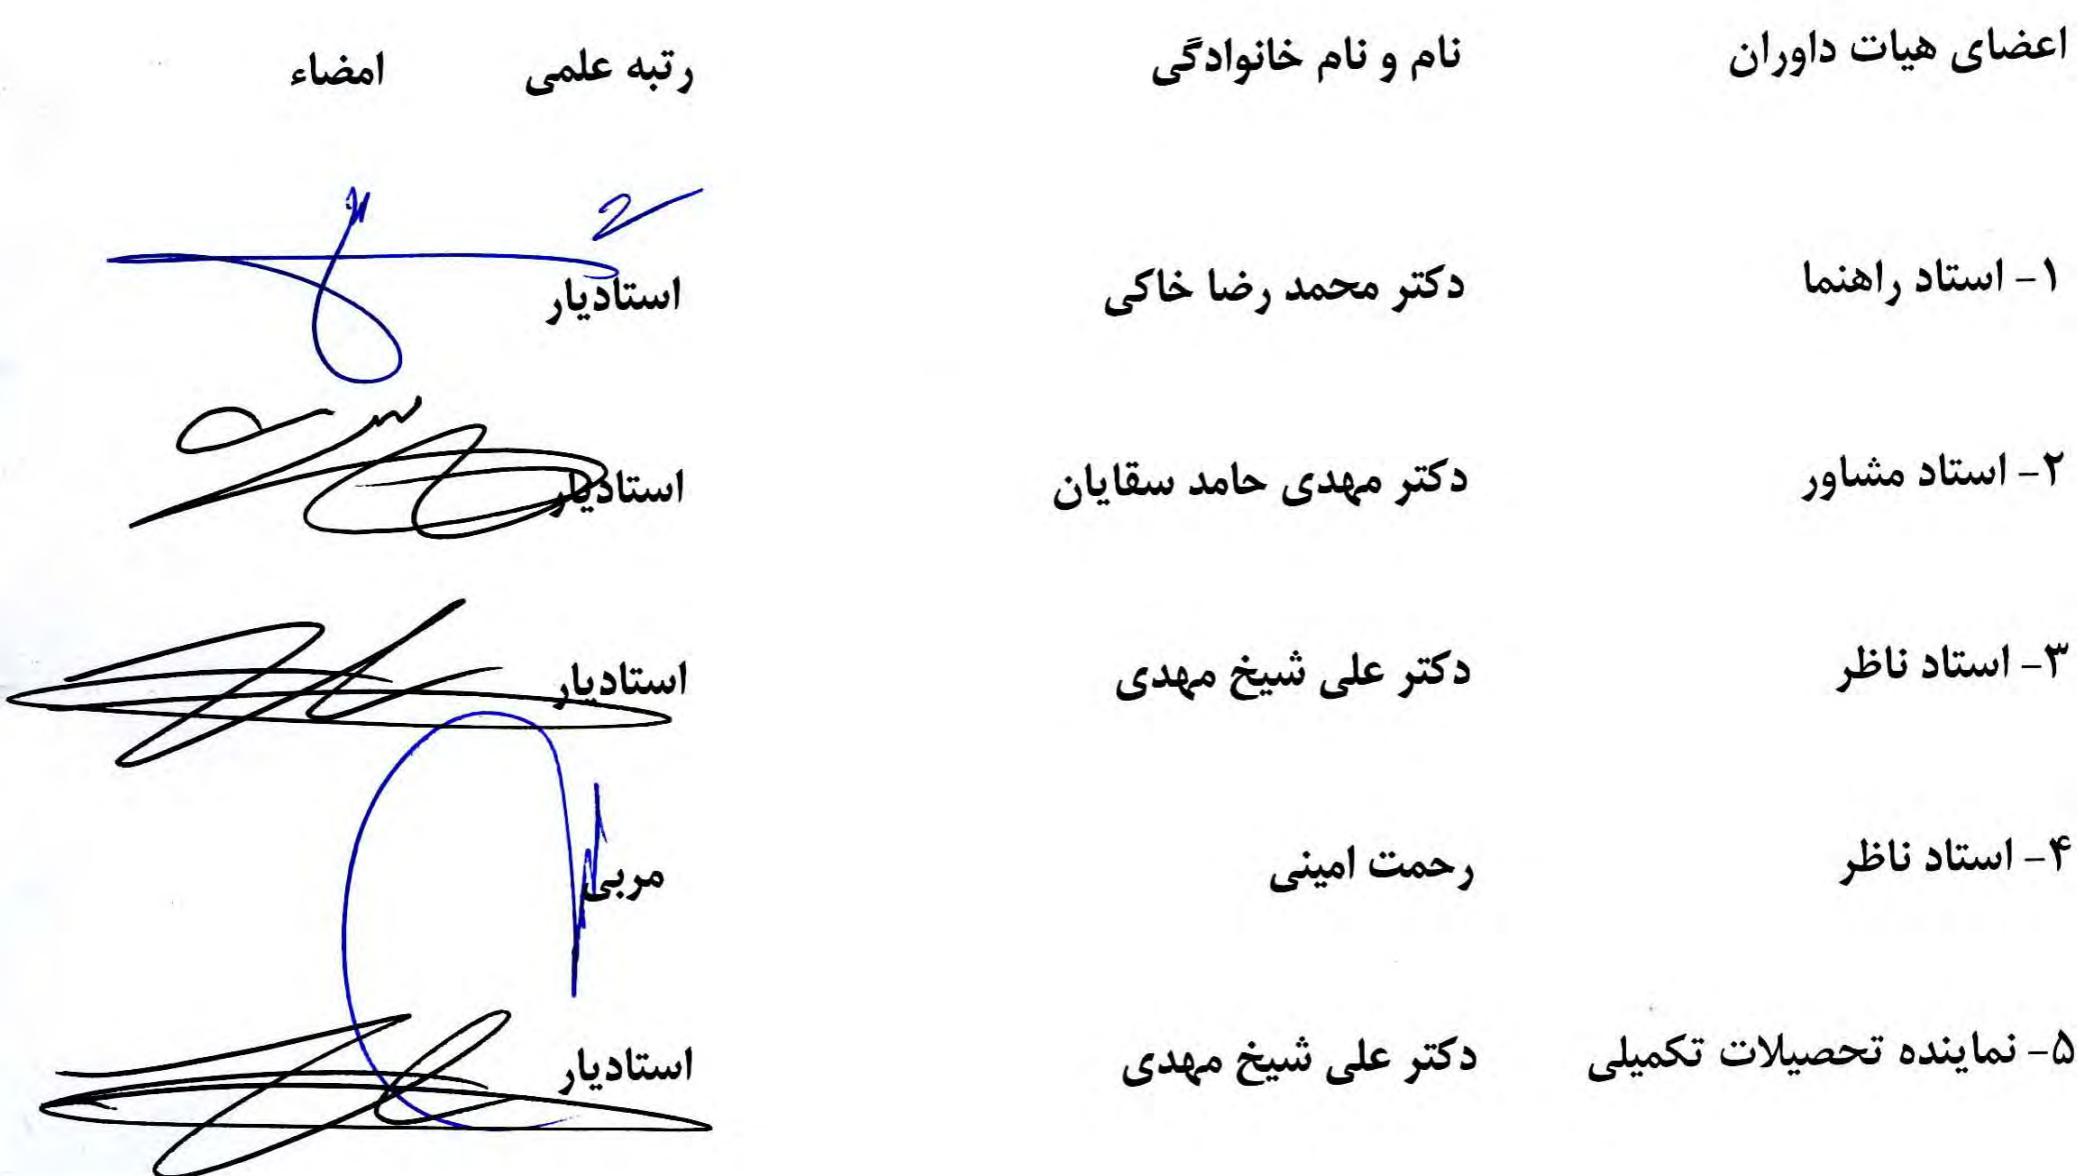 اعضای هیات داوران نام و نام خانوادگی رتبه علمی امضاء
۱- استاد راهنما دکتر محمد رضا خاکی استادیار
۲- استاد مشاور دکتر مهدی حامد سقایان استادیار
۳- استاد ناظر دکتر علی شیخ مهدی استادیار
۴- استاد ناظر رحمت امینی مربی
۵- نماینده تحصیلات تکمیلی دکتر علی شیخ مهدی استادیار